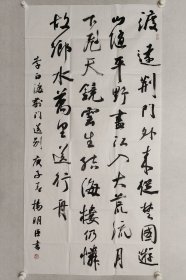 渡远荆门外来从楚国游
山随平野尽江入大荒流月
下飞天镜云生结海楼仍怜
故乡水万里送行舟
李白渡荆门送别 庚子 杨明臣书